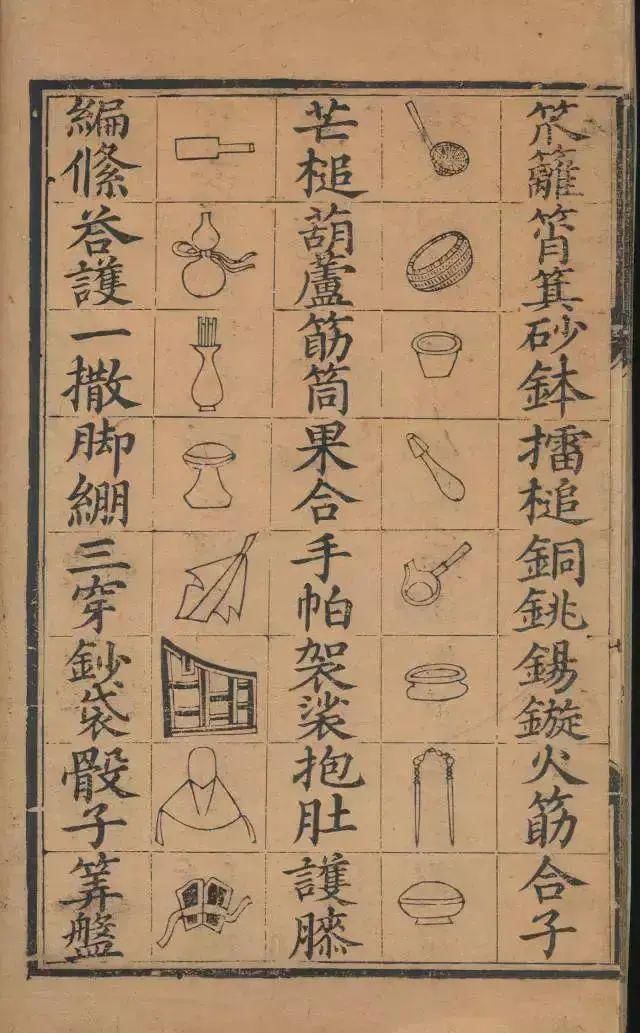 笊籬筲箕砂鉢擂槌銅銚錫鏇火筯合子
芒槌葫蘆筯筒果合手帕袈裟抱肚護膝
編絛荅護一撒脚綳三穿鈔袋骰子筭盤